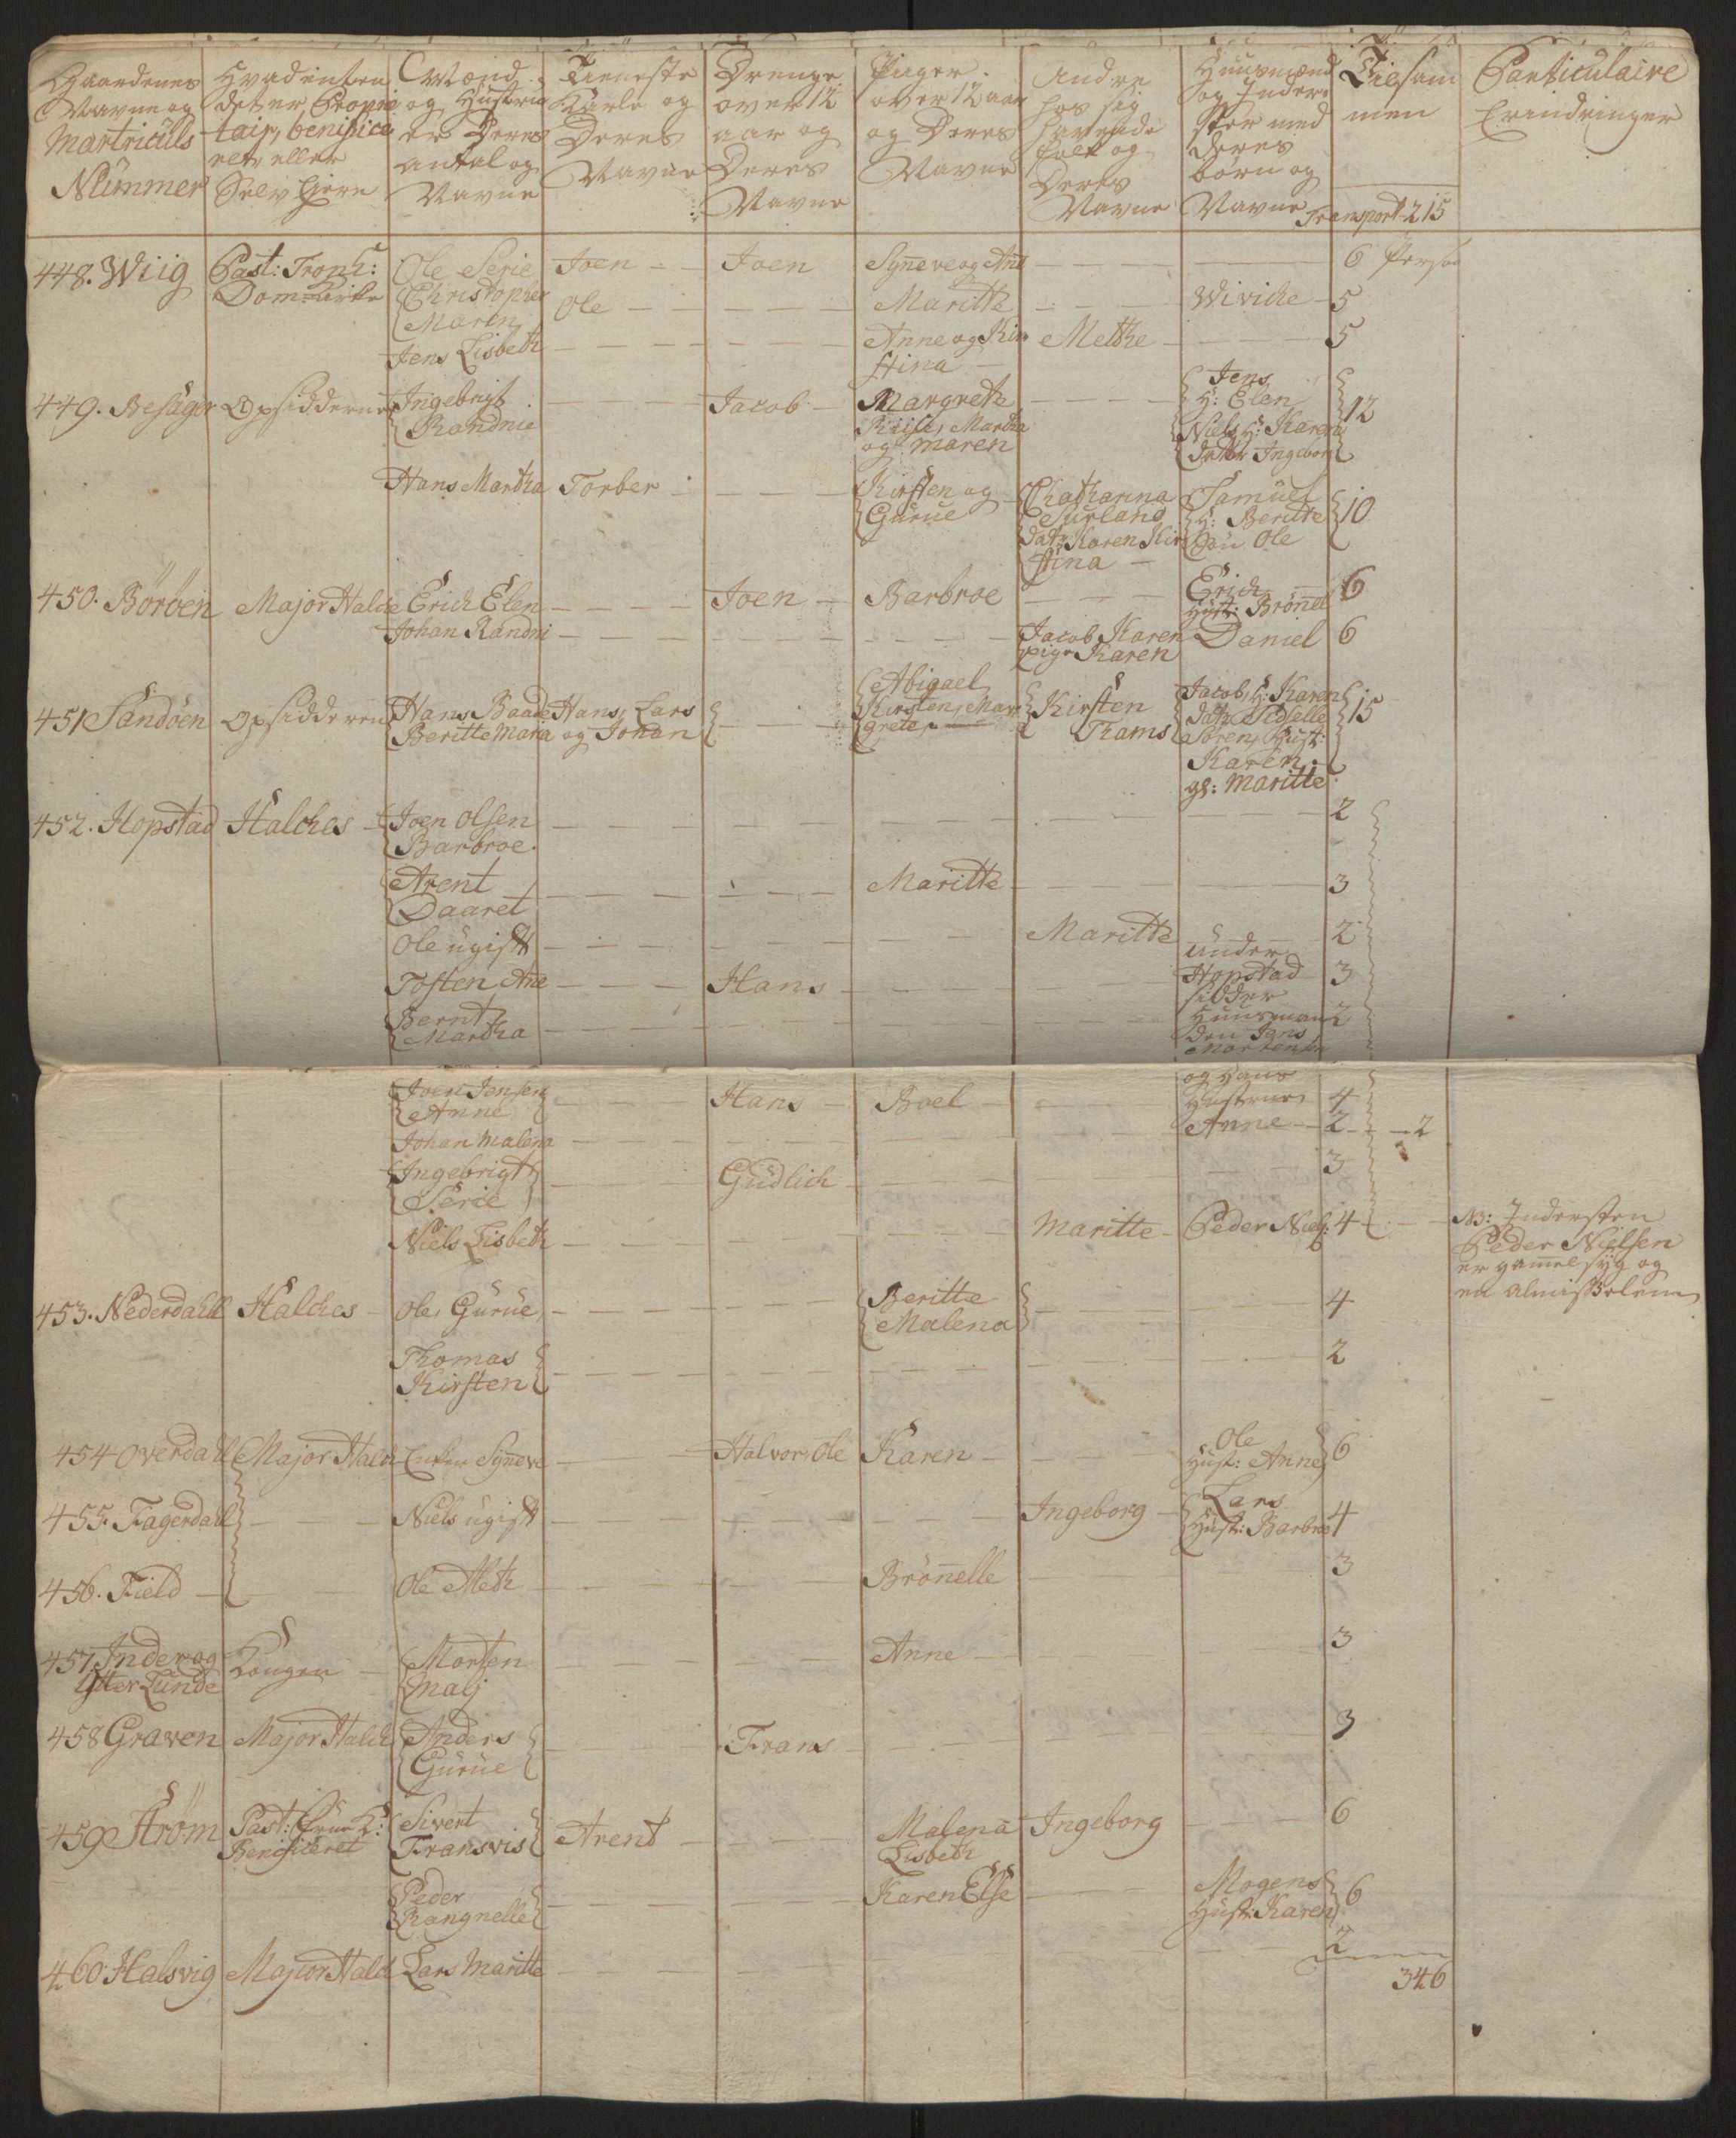 Gaardenes Navne og Martriculs Nummer
Hvad enten det er Proprietair, benificeret, eller Selv Ejere
Mænd og Hustruer Deres antal og Navne
Tieneste Karle og Deres Navne
Drenge over 12 aar og Deres Navne
Piiger over 12 aar og Deres Navne
Andre hos sig havende folk og Deres Navne
Huusmænd og Inderster med deres børn og Navne
Tilsammen
Particulaire Erindringer
Transport 215
448. Wiig Past: Tronh: Ole Serie Joen — Joen Synneve og Ane — — 6 Perso
Dom Kirke Christopher Maren Ole — — Maritte — Wiviche 5
Jens Lisbeth — — Anne og Kirstina — Metthe — 5
449. Besager Opsidderne Ingebrigt Randnie — Jacob Margrete — Jens H: Elen 12
Martha og Maren Niels H: Karen datter Ingebor
Hans Martha Torber — — Kirsten og Gurue Chatharina datr Karen Kirstina — Samuel H: Beritte Søn Ole 10
450. Böröen Major Halch Erich Elen — Joen Barbroe — Erich Hust: Brönnel 6
Johan Randni — — — Jacob Karen pige Karen Daniel 6
451 Sandöen Opsidderen Hans Baade Beritte Mara Hans, Lars og Johan — Abigael Kirsten, Margrete, Kirsten Thams Jacob, H: Karen datr Sidselle Sören, Hust: Karen gl: Maritte 15
452. Hopstad Halches Joen Olsen Barbroe — — — 2
Arent Daaret — — Maritte — 3
Ole ugift — — — Maritte 2
Tosten Ane — Hans — — under Hopstad sidder 3
Bernt Martha — — — Huusmanden Jens Mortensen 2
Joen Jensen Anne — Hans Boel — og Hans Hustrue 4
Johan Malena — — — Anne 2 — 2
Ingebrigt Serie — Gudlich — — 3
Niels Lisbeth — — — Maritte Peder Niels: 4 NB: Indersten Peder Nielsen er gamel syg og en Almisselem
453. Nederdahll Halches Ole, Gurue, — — Beritte Malena — 4
Thomas Kirsten — — — 2
454 Overdall Major Halch Synneve — Halvor, Ole Karen — Ole Hust: Anne 6
455. Fagerdall — Niels ugift — — — Ingeborg Lars Hust: Barbroe 4
456. Field — Ole Meth — — Brönnelle — 3
457 Inder og Ytter Lunde Kongen Morten Malj — — Anne — 3
458 Graven Major Halch Anders Gurue — Frans — — 3
459 Ström Past: Benificeret Sivert Fransvis Arent — Malena Lisbeth Ingeborg — 6
Peder Rangnelle — — Karen Else — Mogens Hust: Karen 6
460 Halsvig Major Halch Lars Maritte — — — 2
346